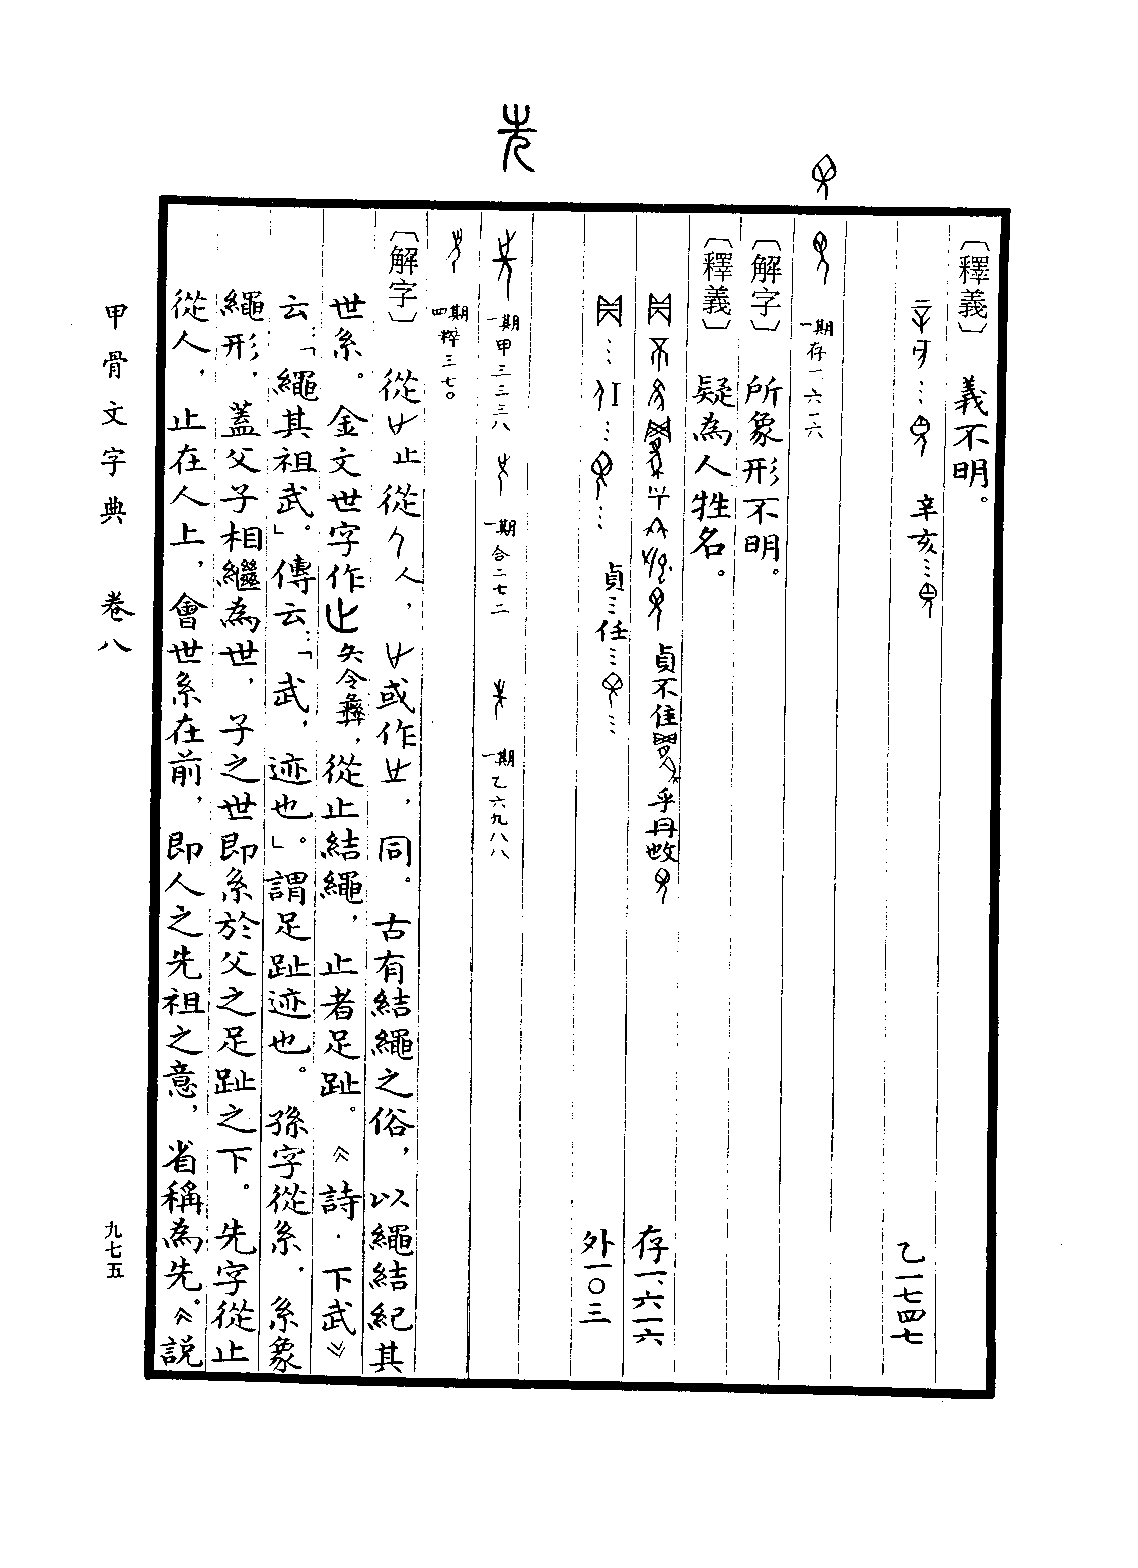 先
〔釋義〕 義不明。
辛亥…
乙一七四七
一期存一·六一六
〔解字〕 所象形不明。
〔釋義〕 疑為人牲名。
貞不隹 乎
存一·六一六
貞…任…
外一〇三
一期甲三三三八 一期合二七二 一期乙六九八八
四期粹三七〇
〔解字〕 從止從人，或作，同。古有結繩之俗，以繩結紀其
世系。金文世字作 夨令彝，從止結繩，止者足趾。《詩·下武》
云：「繩其祖武。」傳云：「武，迹也」。謂足趾迹也。孫字從系，系象
繩形，蓋父子相繼為世，子之世即系於父之足趾之下。先字從止
從人，止在人上，會世系在前，即人之先祖之意，省稱為先。《說
甲骨文字典 卷八
九七五